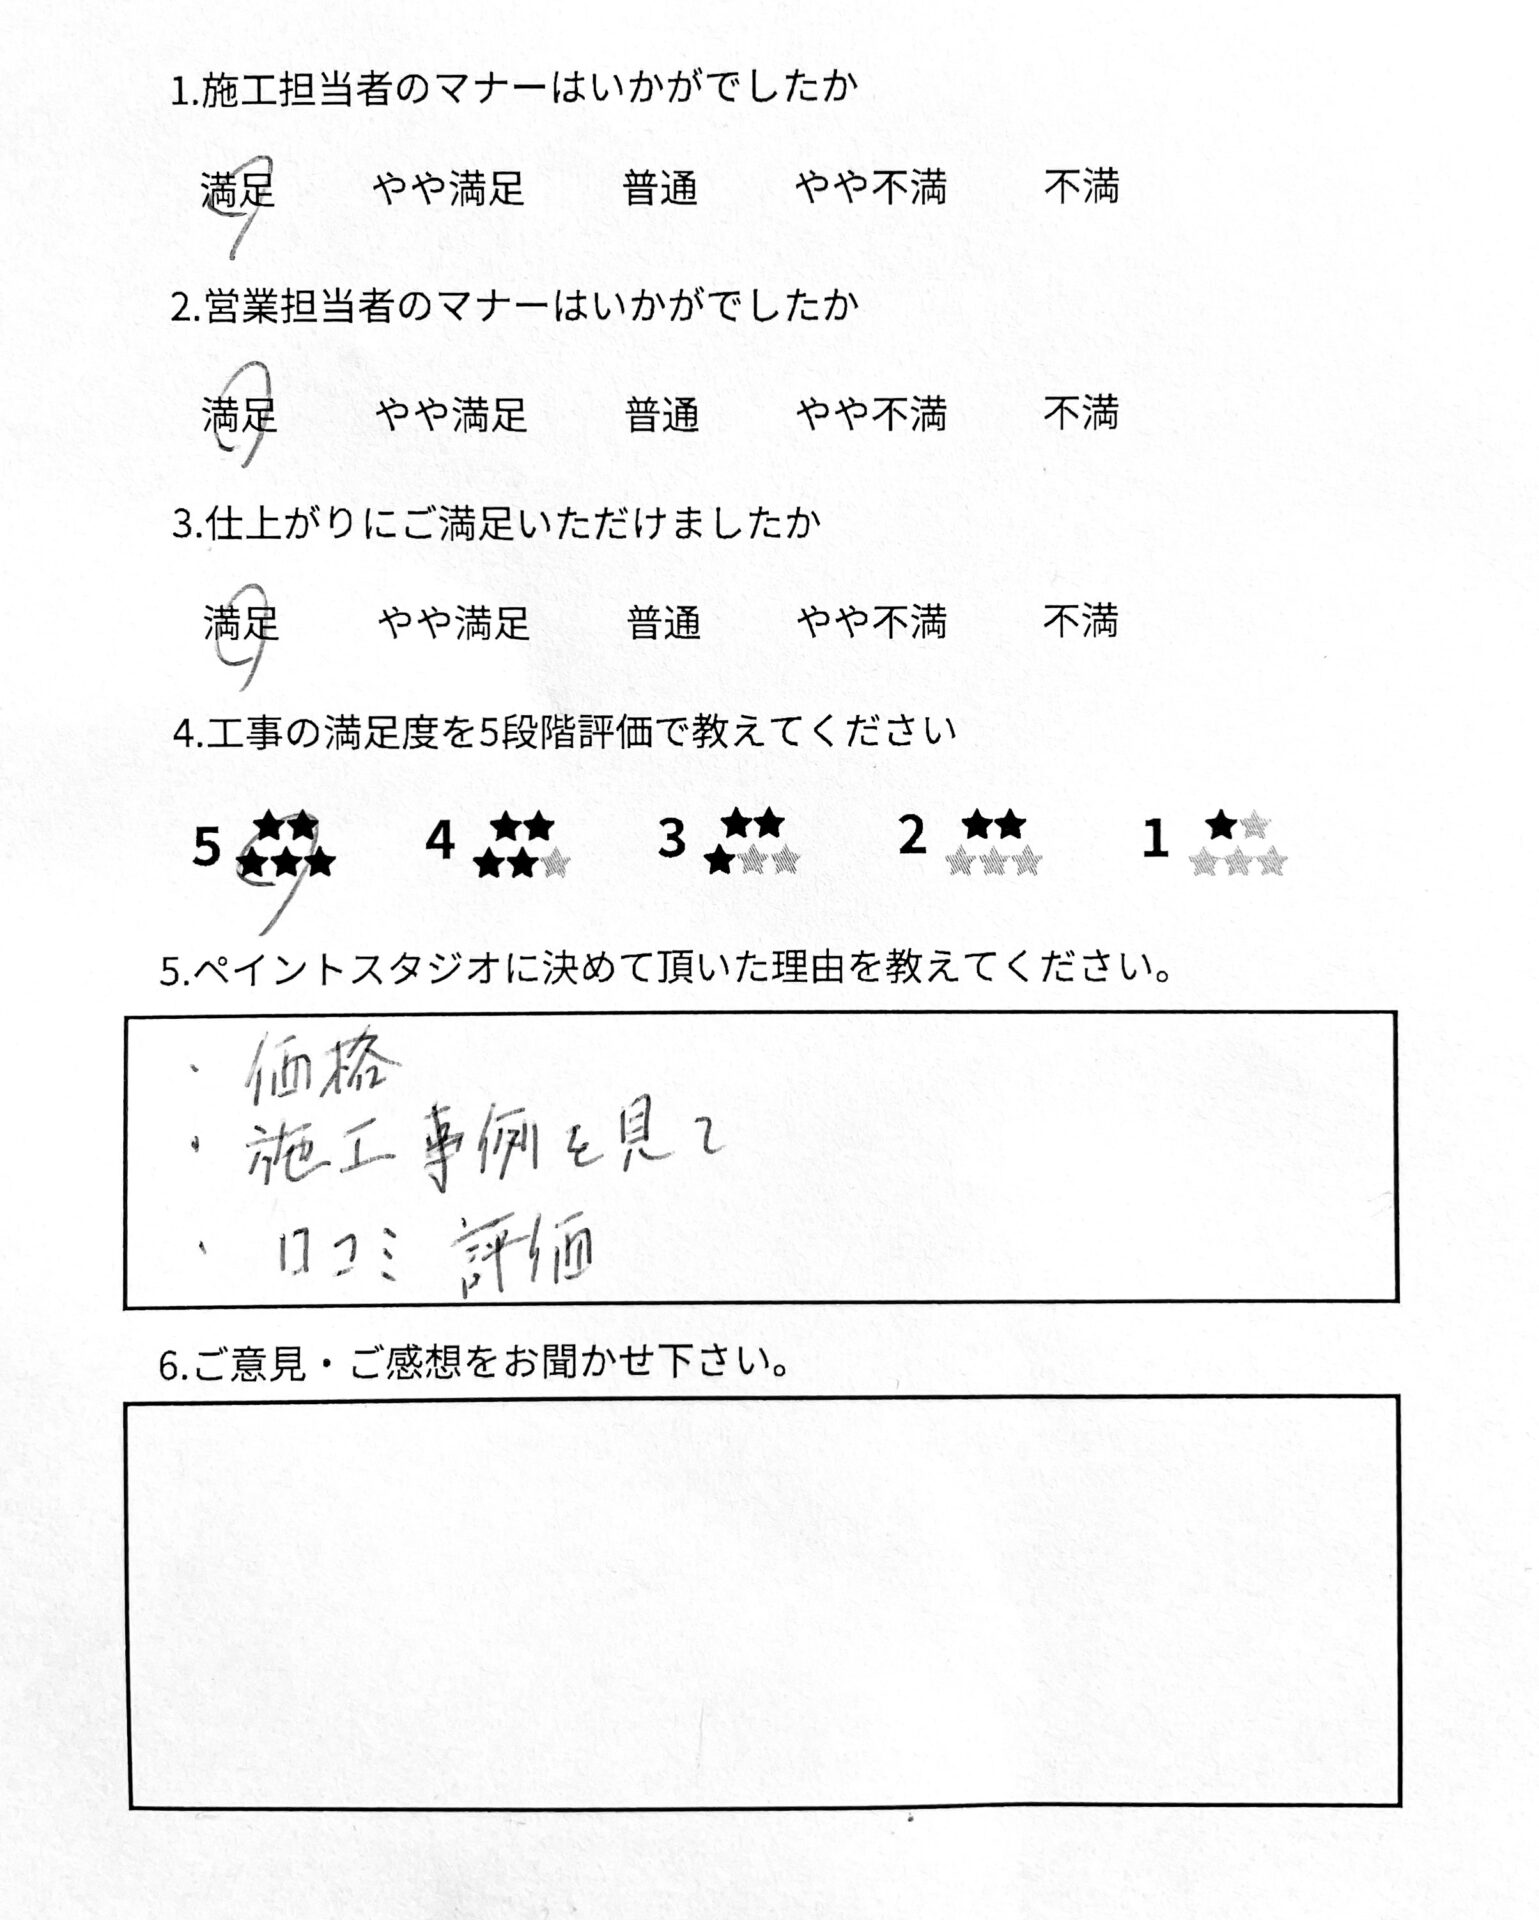 1.施工担当者のマナーはいかがでしたか
満足 やや満足 普通 やや不満 不満
2.営業担当者のマナーはいかがでしたか
満足 やや満足 普通 やや不満 不満
3.仕上がりにご満足いただけましたか
満足 やや満足 普通 やや不満 不満
4.工事の満足度を5段階評価で教えてください
5 ★★★★★ 4 ★★★★☆ 3 ★★★☆☆ 2 ★★☆☆☆ 1 ★☆☆☆☆
5.ペイントスタジオに決めて頂いた理由を教えてください。
・価格
・施工事例を見て
・口コミ 評価
6.ご意見・ご感想をお聞かせ下さい。